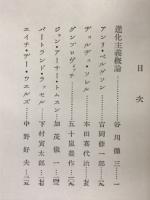 目次
進化主義概論 谷川徹三
アンリ・ベルグソン 吉岡修一郎
ヂョルヂュ・ソレル 本田喜代治
グンプロヴィッチ 五十嵐豊作
ジョン・アーサー・トムスン 加茂儀一
バートランド・ラッセル 下村寅太郎
エイチ・ヂー・ウエルズ 中野好夫